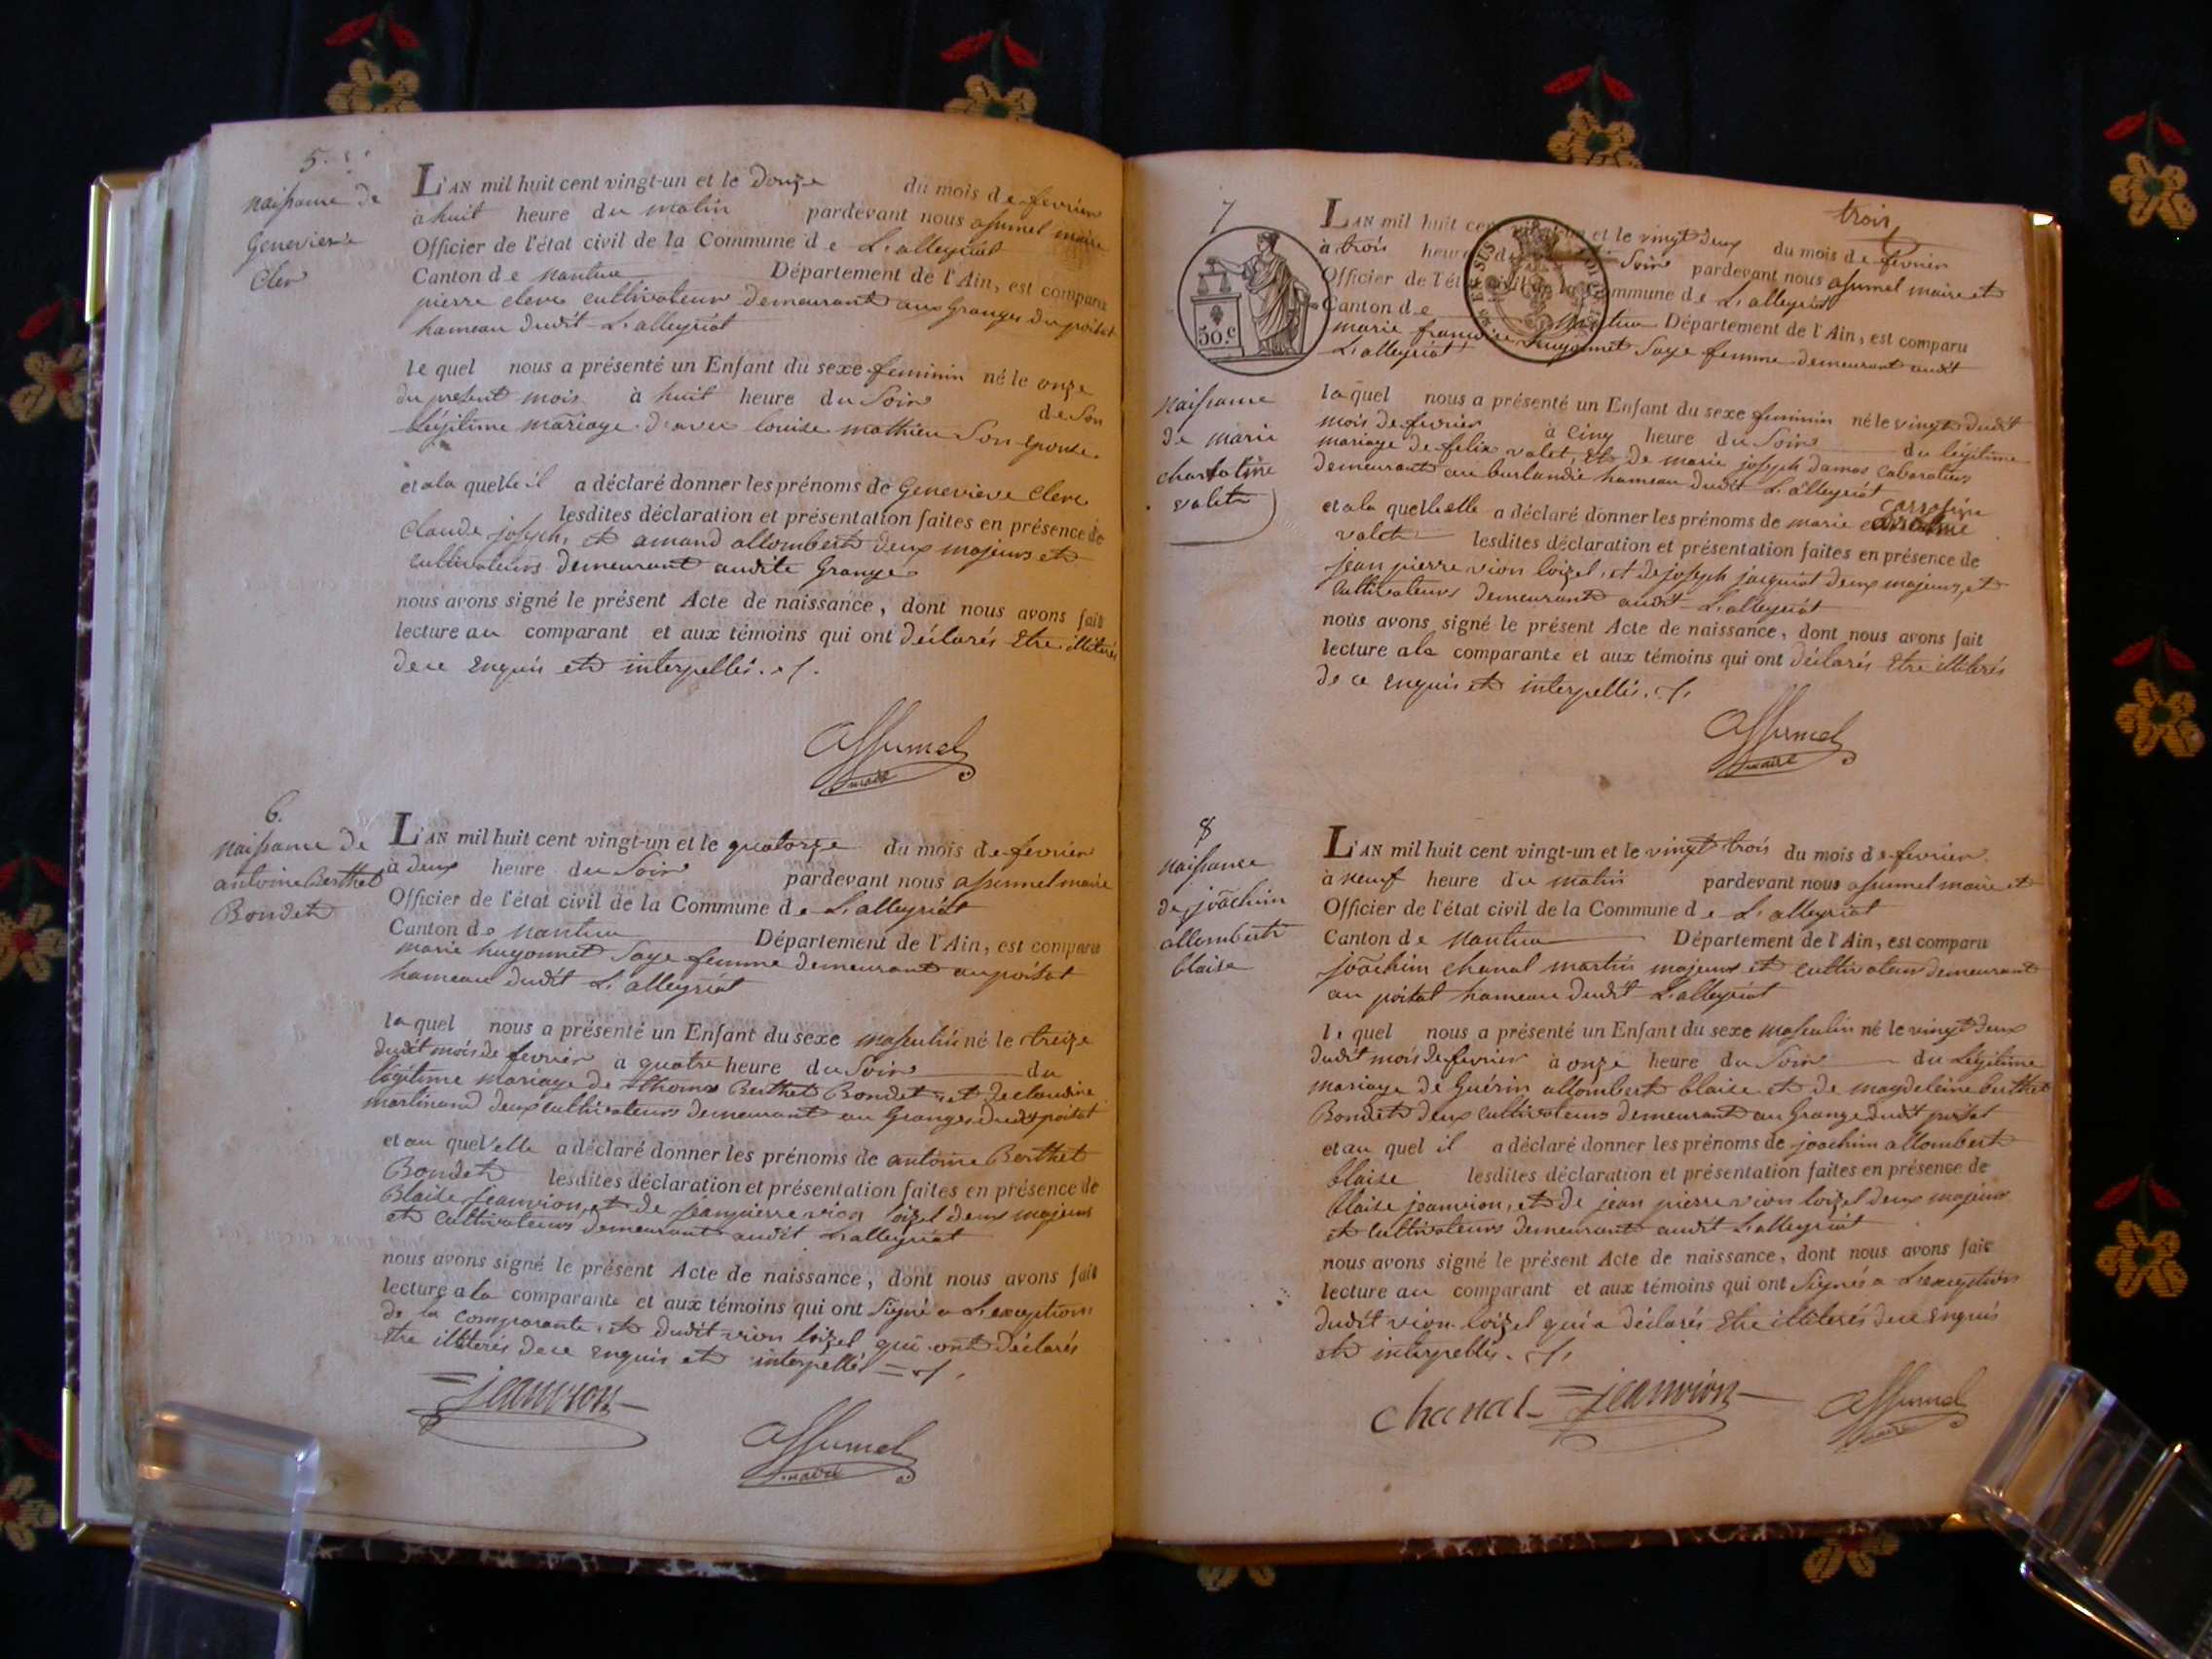 5.
naissance de
Genevieve
Clerc
L'AN mil huit cent vingt-un et le douze du mois de fevrier
à huit heure du matin pardevant nous assumel maire
Officier de l'état civil de la Commune de L'alleyriat
Canton de nantua Département de l'Ain, est comparu
pierre clerc cultivateur demeurant aux Granges du poisat
hameau dudit L'alleyriat
le quel nous a présenté un Enfant du sexe feminin né le onze
du present mois à huit heure du Soir de Son
légitime mariage d'avec louise mathieu Son epouse.
et a la quelle il a déclaré donner les prénoms de Genevieve Clerc
lesdites déclaration et présentation faites en présence de
Claude joseph, et amand allombert deux majeurs et
cultivateurs demeurant audite Grange
nous avons signé le présent Acte de naissance, dont nous avons fait
lecture au comparant et aux témoins qui ont déclarés Etre illiterés
de ce enquis et interpellés.
assumel
maire
6.
naissance de
antoine Berthet
Bondet
L'AN mil huit cent vingt-un et le quatorze du mois de fevrier
à deux heure du Soir pardevant nous assumel maire
Officier de l'état civil de la Commune de L'alleyriat
Canton de nantua Département de l'Ain, est comparu
marie hugonnet Sage femme demeurant au poisat
hameau dudit L'alleyriat
la quel nous a présenté un Enfant du sexe masculin né le treize
dudit mois de fevrier à quatre heure du Soir du
légitime mariage de thomas Berthet Bondet, et de claudine
martinand deux cultivateurs demeurant au Granges dudit poisat
et au quel elle a déclaré donner les prénoms de antoine Berthet
Bondet lesdites déclaration et présentation faites en présence de
Blaise jeanvion, et de jean pierre vion loizel deux majeurs
et cultivateurs demeurant audit L'alleyriat
nous avons signé le présent Acte de naissance, dont nous avons fait
lecture a la comparante et aux témoins qui ont Signé a L'exception
de la comparante, et dudit vion loizel qui ont déclarés
Etre illiterés de ce enquis et interpellés
jeanvion
assumel
maire
trois
7
50.c
naissance
de marie
valet
L'AN mil huit cent vingt-un et le vingt deux du mois de fevrier
à trois heure du Soir pardevant nous assumel maire et
Officier de l'état civil de la Commune de L'alleyriat
Canton de nantua Département de l'Ain, est comparu
marie francoise hugonnet Sage femme demeurant audit
L'alleyriat
la quel nous a présenté un Enfant du sexe feminin né le vingt dudit
mois de fevrier à cinq heure du Soir du légitime
mariage de felix valet, et de marie joseph damas
demeurant au burlandié hameau dudit L'alleyriat
et a la quelle elle a déclaré donner les prénoms de marie
valet lesdites déclaration et présentation faites en présence de
jean pierre vion loizel, et de joseph jacquiot deux majeurs, et
cultivateurs demeurant audit L'alleyriat
nous avons signé le présent Acte de naissance, dont nous avons fait
lecture a la comparante et aux témoins qui ont déclarés Etre illiterés
de ce enquis et interpellés.
assumel
maire
8
naissance
de joachim
allombert
blaise
L'AN mil huit cent vingt-un et le vingt trois du mois de fevrier
à neuf heure du matin pardevant nous assumel maire et
Officier de l'état civil de la Commune de L'alleyriat
Canton de nantua Département de l'Ain, est comparu
joachim chanal martin majeur et cultivateur demeurant
au poisat hameau dudit L'alleyriat
le quel nous a présenté un Enfant du sexe masculin né le vingt deux
dudit mois de fevrier à onze heure du Soir du légitime
mariage de Guérin allombert blaise et de magdeleine berthet
Bondet deux cultivateurs demeurant au Grange dudit poisat
et au quel il a déclaré donner les prénoms de joachim allombert
blaise lesdites déclaration et présentation faites en présence de
blaise jeanvion, et de jean pierre vion loizel deux majeurs
et cultivateurs demeurant audit L'alleyriat
nous avons signé le présent Acte de naissance, dont nous avons fait
lecture au comparant et aux témoins qui ont Signés a L'exception
dudit vion loizel qui a déclarés Etre illiterés de ce enquis
et interpellés.
chanal jeanvion assumel
maire